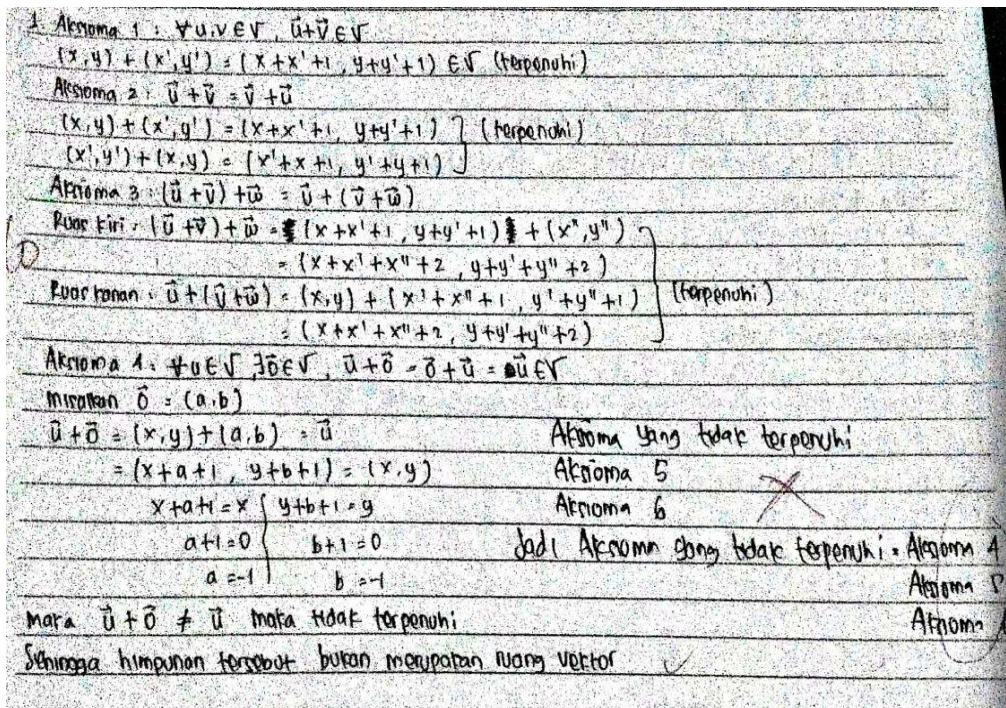 1. Aksioma 1 : ∀u,v∈V, u⃗+v⃗∈V
(x,y) + (x',y') = (x+x'+1, y+y'+1) ∈V (terpenuhi)
Aksioma 2 : u⃗ + v⃗ = v⃗ + u⃗
(x,y) + (x',y') = (x+x'+1, y+y'+1) } (terpenuhi)
(x',y') + (x,y) = (x'+x+1, y'+y+1)
Aksioma 3 : (u⃗ + v⃗) + w⃗ = u⃗ + (v⃗ + w⃗)
Ruas kiri : (u⃗ + v⃗) + w⃗ = (x+x'+1, y+y'+1) + (x",y")
= (x+x'+x"+2, y+y'+y"+2)
Ruas kanan : u⃗ + (v⃗ + w⃗) = (x,y) + (x'+x"+1, y'+y"+1) } (terpenuhi)
= (x+x'+x"+2, y+y'+y"+2)
Aksioma 4 : ∀u∈V, ∃o⃗∈V, u⃗+o⃗ = o⃗+u⃗ = u⃗∈V
misalkan o⃗ = (a,b)
u⃗+o⃗ = (x,y)+(a,b) = u⃗
= (x+a+1, y+b+1) = (x,y)
x+a+1=x { y+b+1=y
a+1=0 b+1=0
a=-1 b=-1
maka u⃗ + o⃗ ≠ u⃗ maka tidak terpenuhi
Sehingga himpunan tersebut bukan merupakan ruang vektor
Aksioma yang tidak terpenuhi
Aksioma 5
Aksioma 6
Jadi Aksioma yang tidak terpenuhi = Aksioma 4
Aksioma
Aksioma